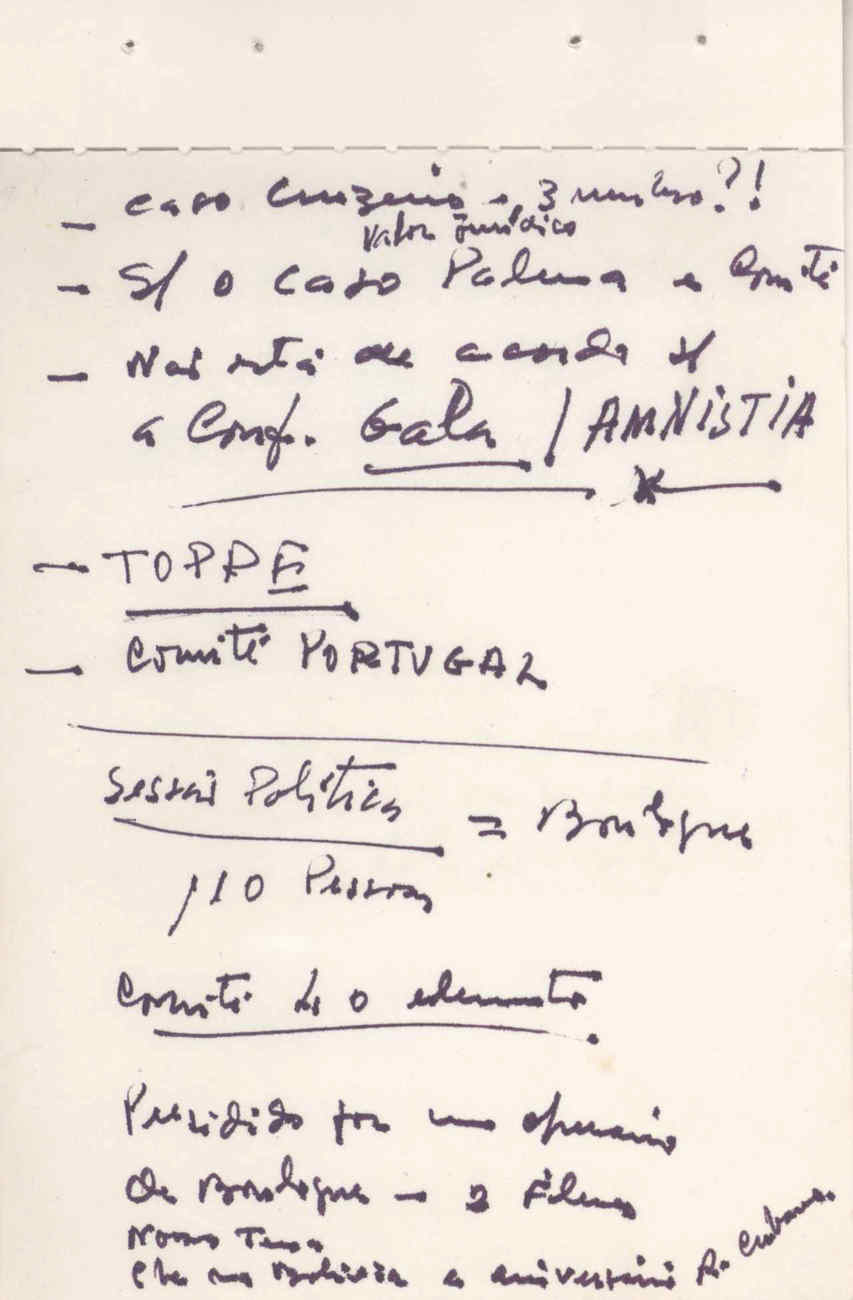 - caso Cruzeiro -, 3 milhões?!
Valor Jurídico
- S/ o caso Palma e Comité
- Não está de acordo s/
a Conf. Gala / AMNISTIA
- TORRE
- Comité PORTUGAL
Sessão Política = Boulogne
110 Pessoas
Comité 40 elementos
Presidido por um operário
de Boulogne - 2 Filmes
Nosso Tema
Che na Bolívia e aniversário R. Cubana